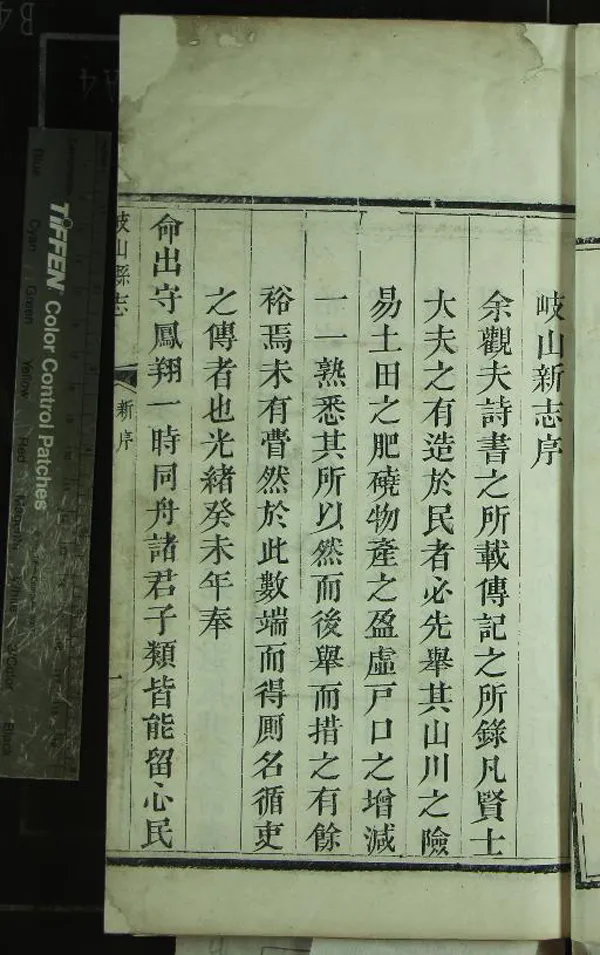 岐山新志序
余觀夫詩書之所載傳記之所錄凡賢士
大夫之有造於民者必先舉其山川之險
易土田之肥磽物產之盈虛戶口之增減
一一熟悉其所以然而後舉而措之有餘
裕焉未有瞢然於此數端而得厠名循吏
之傳者也光緒癸未年奉
命出守鳳翔一時同舟諸君子類皆能留心民
岐山縣志
新序
一
TIFFEN Color Control Patches
Blue
Cyan
Green
Yellow
Red
Magenta
White
3/Color
Black